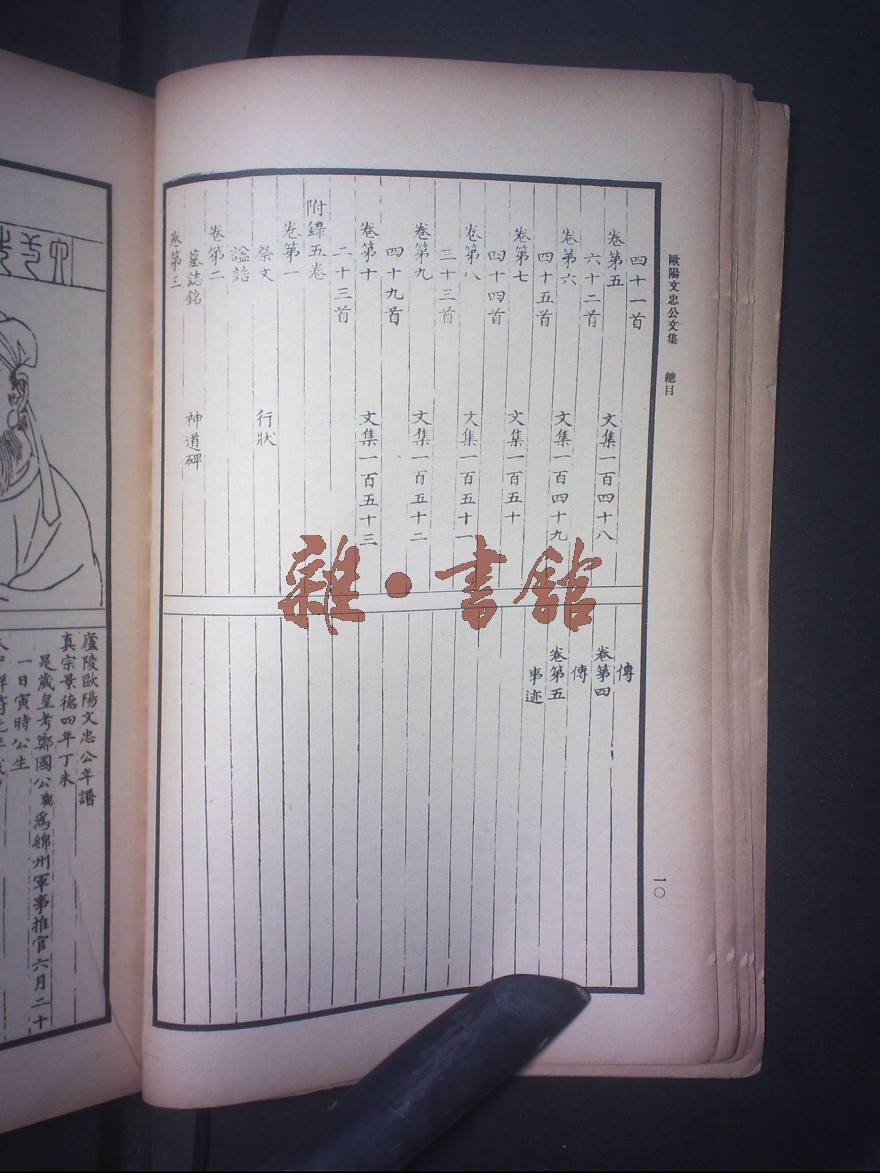 歐陽文忠公文集　總目
一〇
四十一首
卷第五　文集一百四十八
六十二首
卷第六　文集一百四十九
四十五首
卷第七　文集一百五十
四十四首
卷第八　文集一百五十一
三十三首
卷第九　文集一百五十二
四十九首
卷第十　文集一百五十三
二十三首
附錄五卷
卷第一
祭文　行狀
諡誥
卷第二
墓誌銘　神道碑
卷第三
傳
卷第四
傳
卷第五
事迹
雜·書館
廬陵歐陽文忠公年譜
真宗景德四年丁未
是歲皇考鄭國公觀為綿州軍事推官六月二十
一日寅時公生